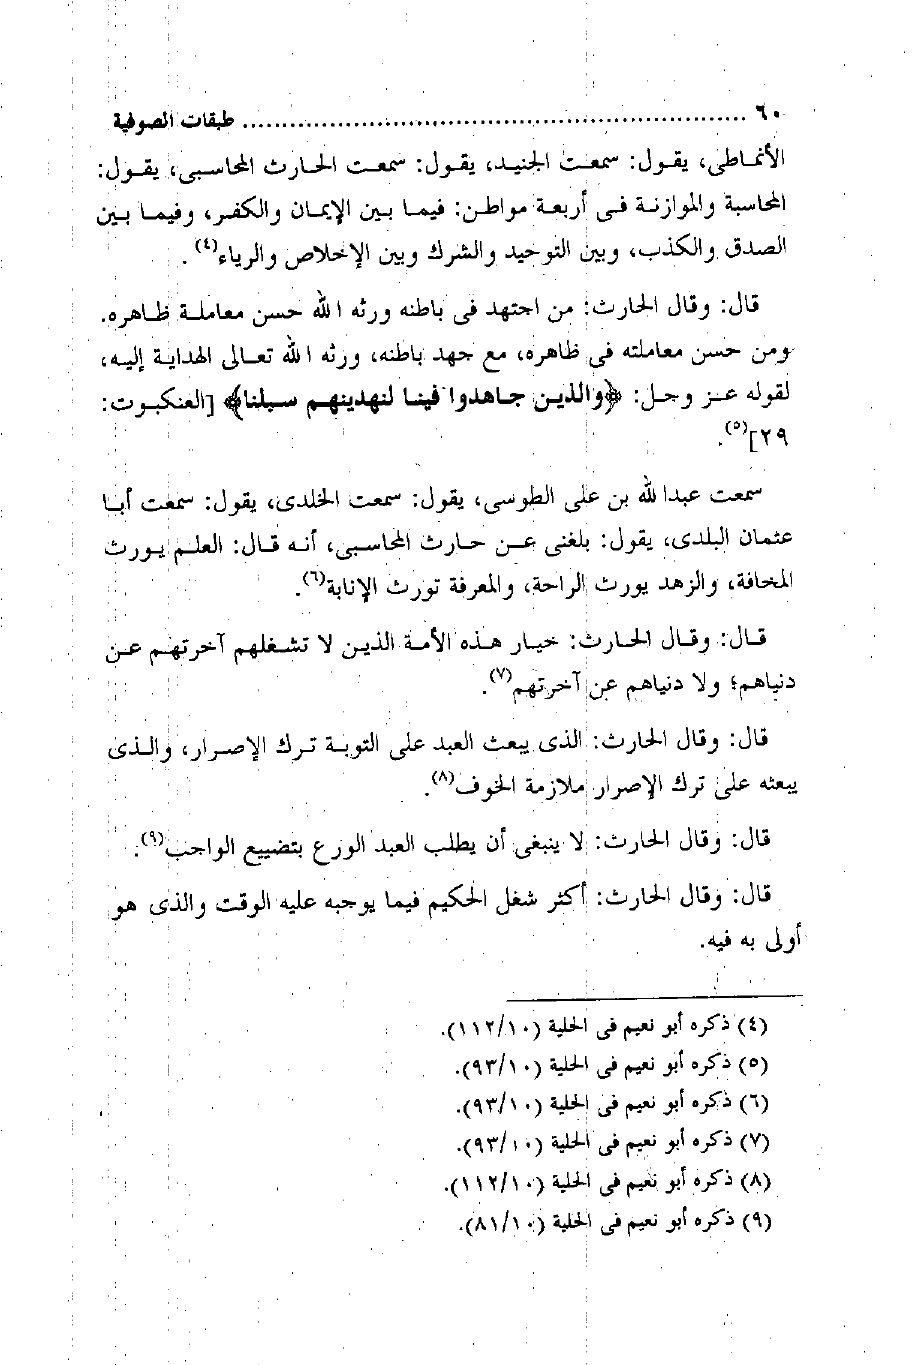 ٦٠ ................................................................ طبقات الصوفية
الأنماطى، يقول: سمعت الجنيد، يقول: سمعت الحارث المحاسبى، يقول:
المحاسبة والموازنة فى أربعة مواطن: فيما بين الإيمان والكفر، وفيما بين
الصدق والكذب، وبين التوحيد والشرك وبين الإخلاص والرياء(٤).
قال: وقال الحارث: من اجتهد فى باطنه ورثه الله حسن معاملة ظاهره.
ومن حسن معاملته فى ظاهره، مع جهد باطنه، ورثه الله تعالى الهداية إليه،
لقوله عز وجل: ﴿والذين جاهدوا فينا لنهدينهم سبلنا﴾ [العنكبوت:
٢٩](٥).
سمعت عبدالله بن على الطوسى، يقول: سمعت الخلدى، يقول: سمعت أبا
عثمان البلدى، يقول: بلغنى عن حارث المحاسبى، أنه قال: العلم يورث
المخافة، والزهد يورث الراحة، والمعرفة تورث الإنابة(٦).
قال: وقال الحارث: خيار هذه الأمة الذين لا تشغلهم آخرتهم عن
دنياهم؛ ولا دنياهم عن آخرتهم(٧).
قال: وقال الحارث: الذى يبعث العبد على التوبة ترك الإصرار، والذى
يبعثه على ترك الإصرار ملازمة الخوف(٨).
قال: وقال الحارث: لا ينبغى أن يطلب العبد الورع بتضييع الواجب(٩).
قال: وقال الحارث: أكثر شغل الحكيم فيما يوجبه عليه الوقت والذى هو
أولى به فيه.
(٤) ذكره أبو نعيم فى الحلية (١١٢/١٠).
(٥) ذكره أبو نعيم فى الحلية (٩٣/١٠).
(٦) ذكره أبو نعيم فى الحلية (٩٣/١٠).
(٧) ذكره أبو نعيم فى الحلية (٩٣/١٠).
(٨) ذكره أبو نعيم فى الحلية (١١٢/١٠).
(٩) ذكره أبو نعيم فى الحلية (٨١/١٠).